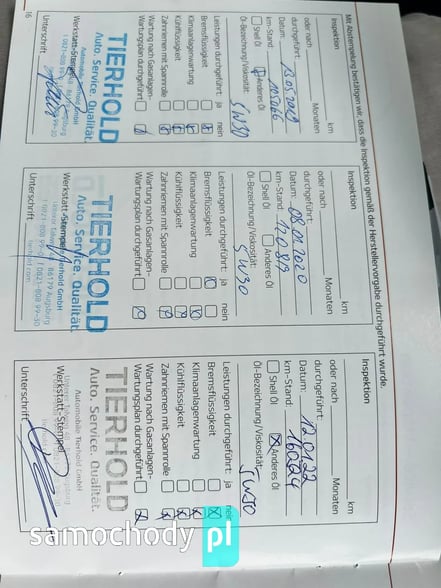 Mit Abstempelung bestätigen wir, dass die Inspektion gemäß der Herstellervorgabe durchgeführt wurde.
Inspektion
km
oder nach
Monaten
durchgeführt:
Datum:
km-Stand
Shell Öl
Anderes Öl
Öl-Bezeichnung/Viskosität:
5W30
Leistungen durchgeführt: ja nein
Bremsflüssigkeit
Klimaanlagenwartung
Kühlflüssigkeit
Zahnriemen mit Spannrolle
Wartung nach Gasanlagen-
Wartungsplan durchgeführt
TIERHOLD
Auto. Service. Qualität.
Werkstatt-Stempel
Unterschrift
16
Inspektion
km
oder nach
Monaten
durchgeführt:
Datum: 08.01.2020
km-Stand
Shell Öl
Anderes Öl
Öl-Bezeichnung/Viskosität:
5W30
Leistungen durchgeführt: ja nein
Bremsflüssigkeit
Klimaanlagenwartung
Kühlflüssigkeit
Zahnriemen mit Spannrolle
Wartung nach Gasanlagen-
Wartungsplan durchgeführt
TIERHOLD
Auto. Service. Qualität.
Werkstatt-Stempel
Tierhold GmbH
86179 Augsburg
Unterschrift
Inspektion
km
oder nach
Monaten
durchgeführt:
Datum:
km-Stand
Shell Öl
Anderes Öl
Öl-Bezeichnung/Viskosität:
5W30
Leistungen durchgeführt: ja nein
Bremsflüssigkeit
Klimaanlagenwartung
Kühlflüssigkeit
Zahnriemen mit Spannrolle
Wartung nach Gasanlagen-
Wartungsplan durchgeführt
TIERHOLD
Auto. Service. Qualität.
Automobile Tierhold GmbH
Werkstatt-Stempel
Unterschrift
samochody pl